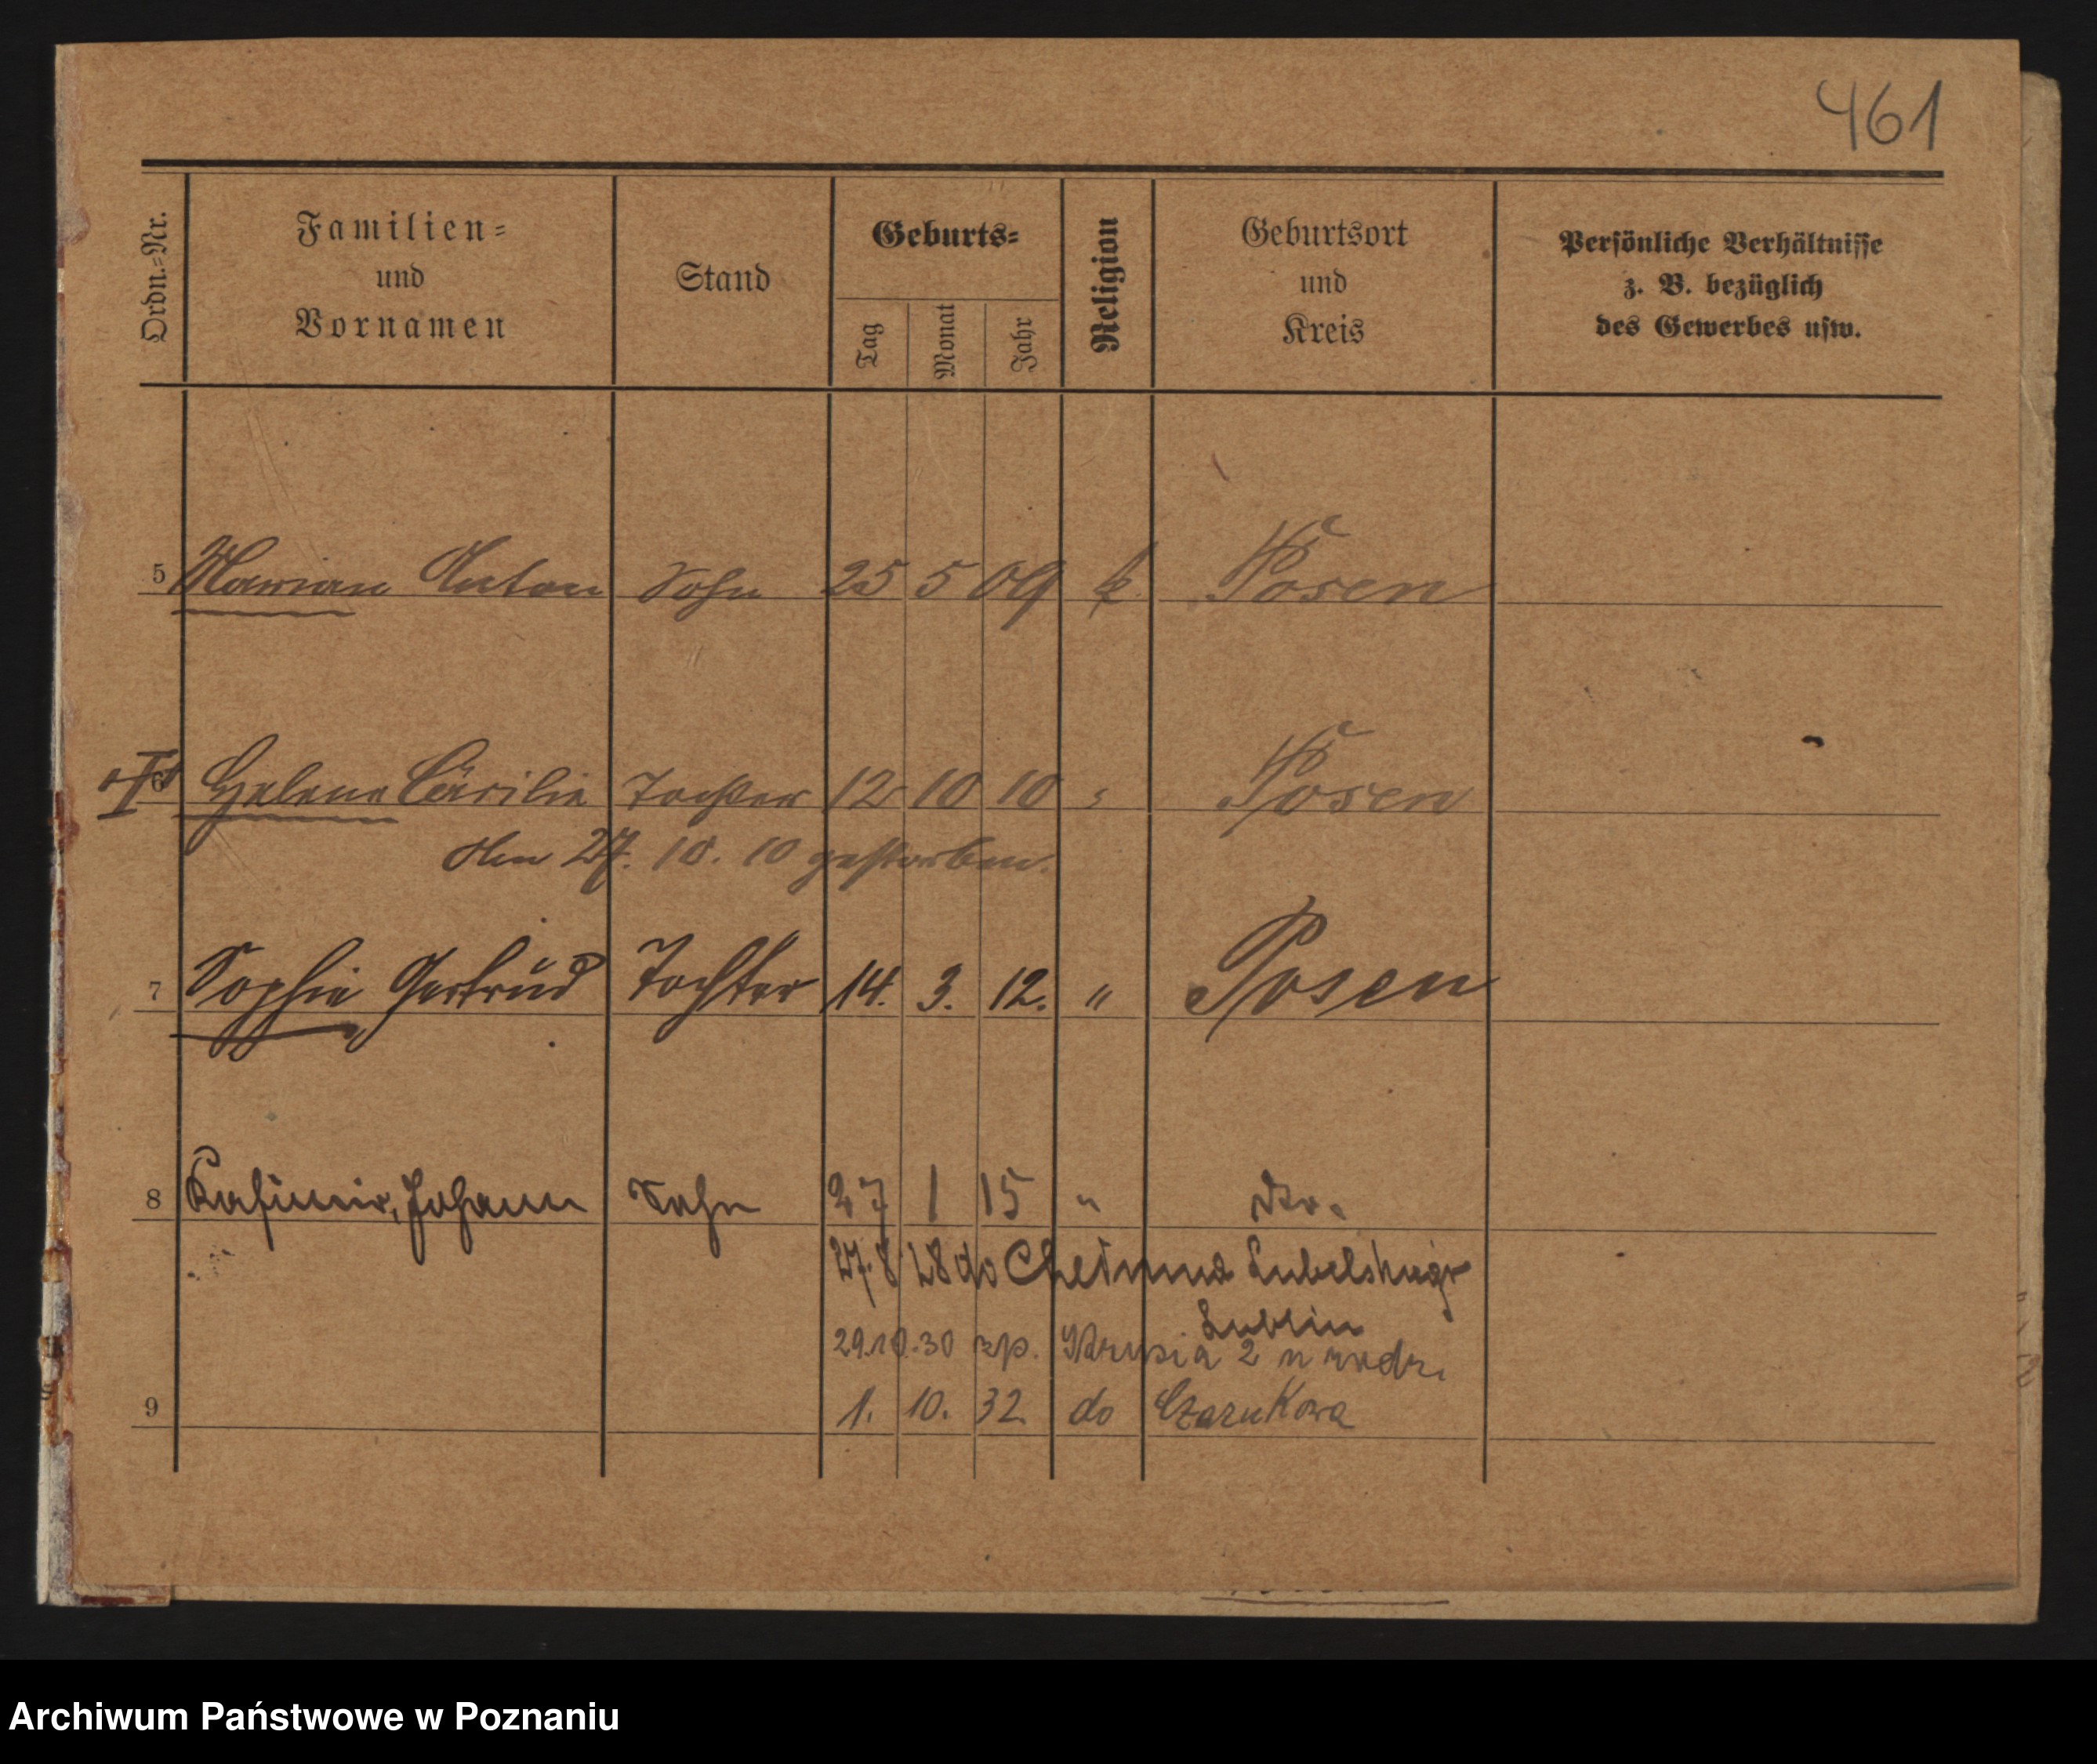 461
Ordn.-Nr.
Familien-
und
Vornamen
Stand
Geburts-
Tag
Monat
Jahr
Religion
Geburtsort
und
Kreis
Persönliche Verhältnisse
z. B. bezüglich
des Gewerbes usw.
5 Marian Anton Sohn 25 5 09 k. Posen
6 Helene Cäcilie Tochter 12 10 10 " Posen
Am 27. 10. 10 gestorben.
7 Sophie Gertrud Tochter 14. 3. 12. " Posen
8 Kasimir, Johann Sohn 27 1 15 " Dto.
27. 8 28 do Chełmna Lubelskiego
Lublin
29.10.30 zp. 2 u rodz.
9 1. 10. 32 do Czarnkowa
Archiwum Państwowe w Poznaniu